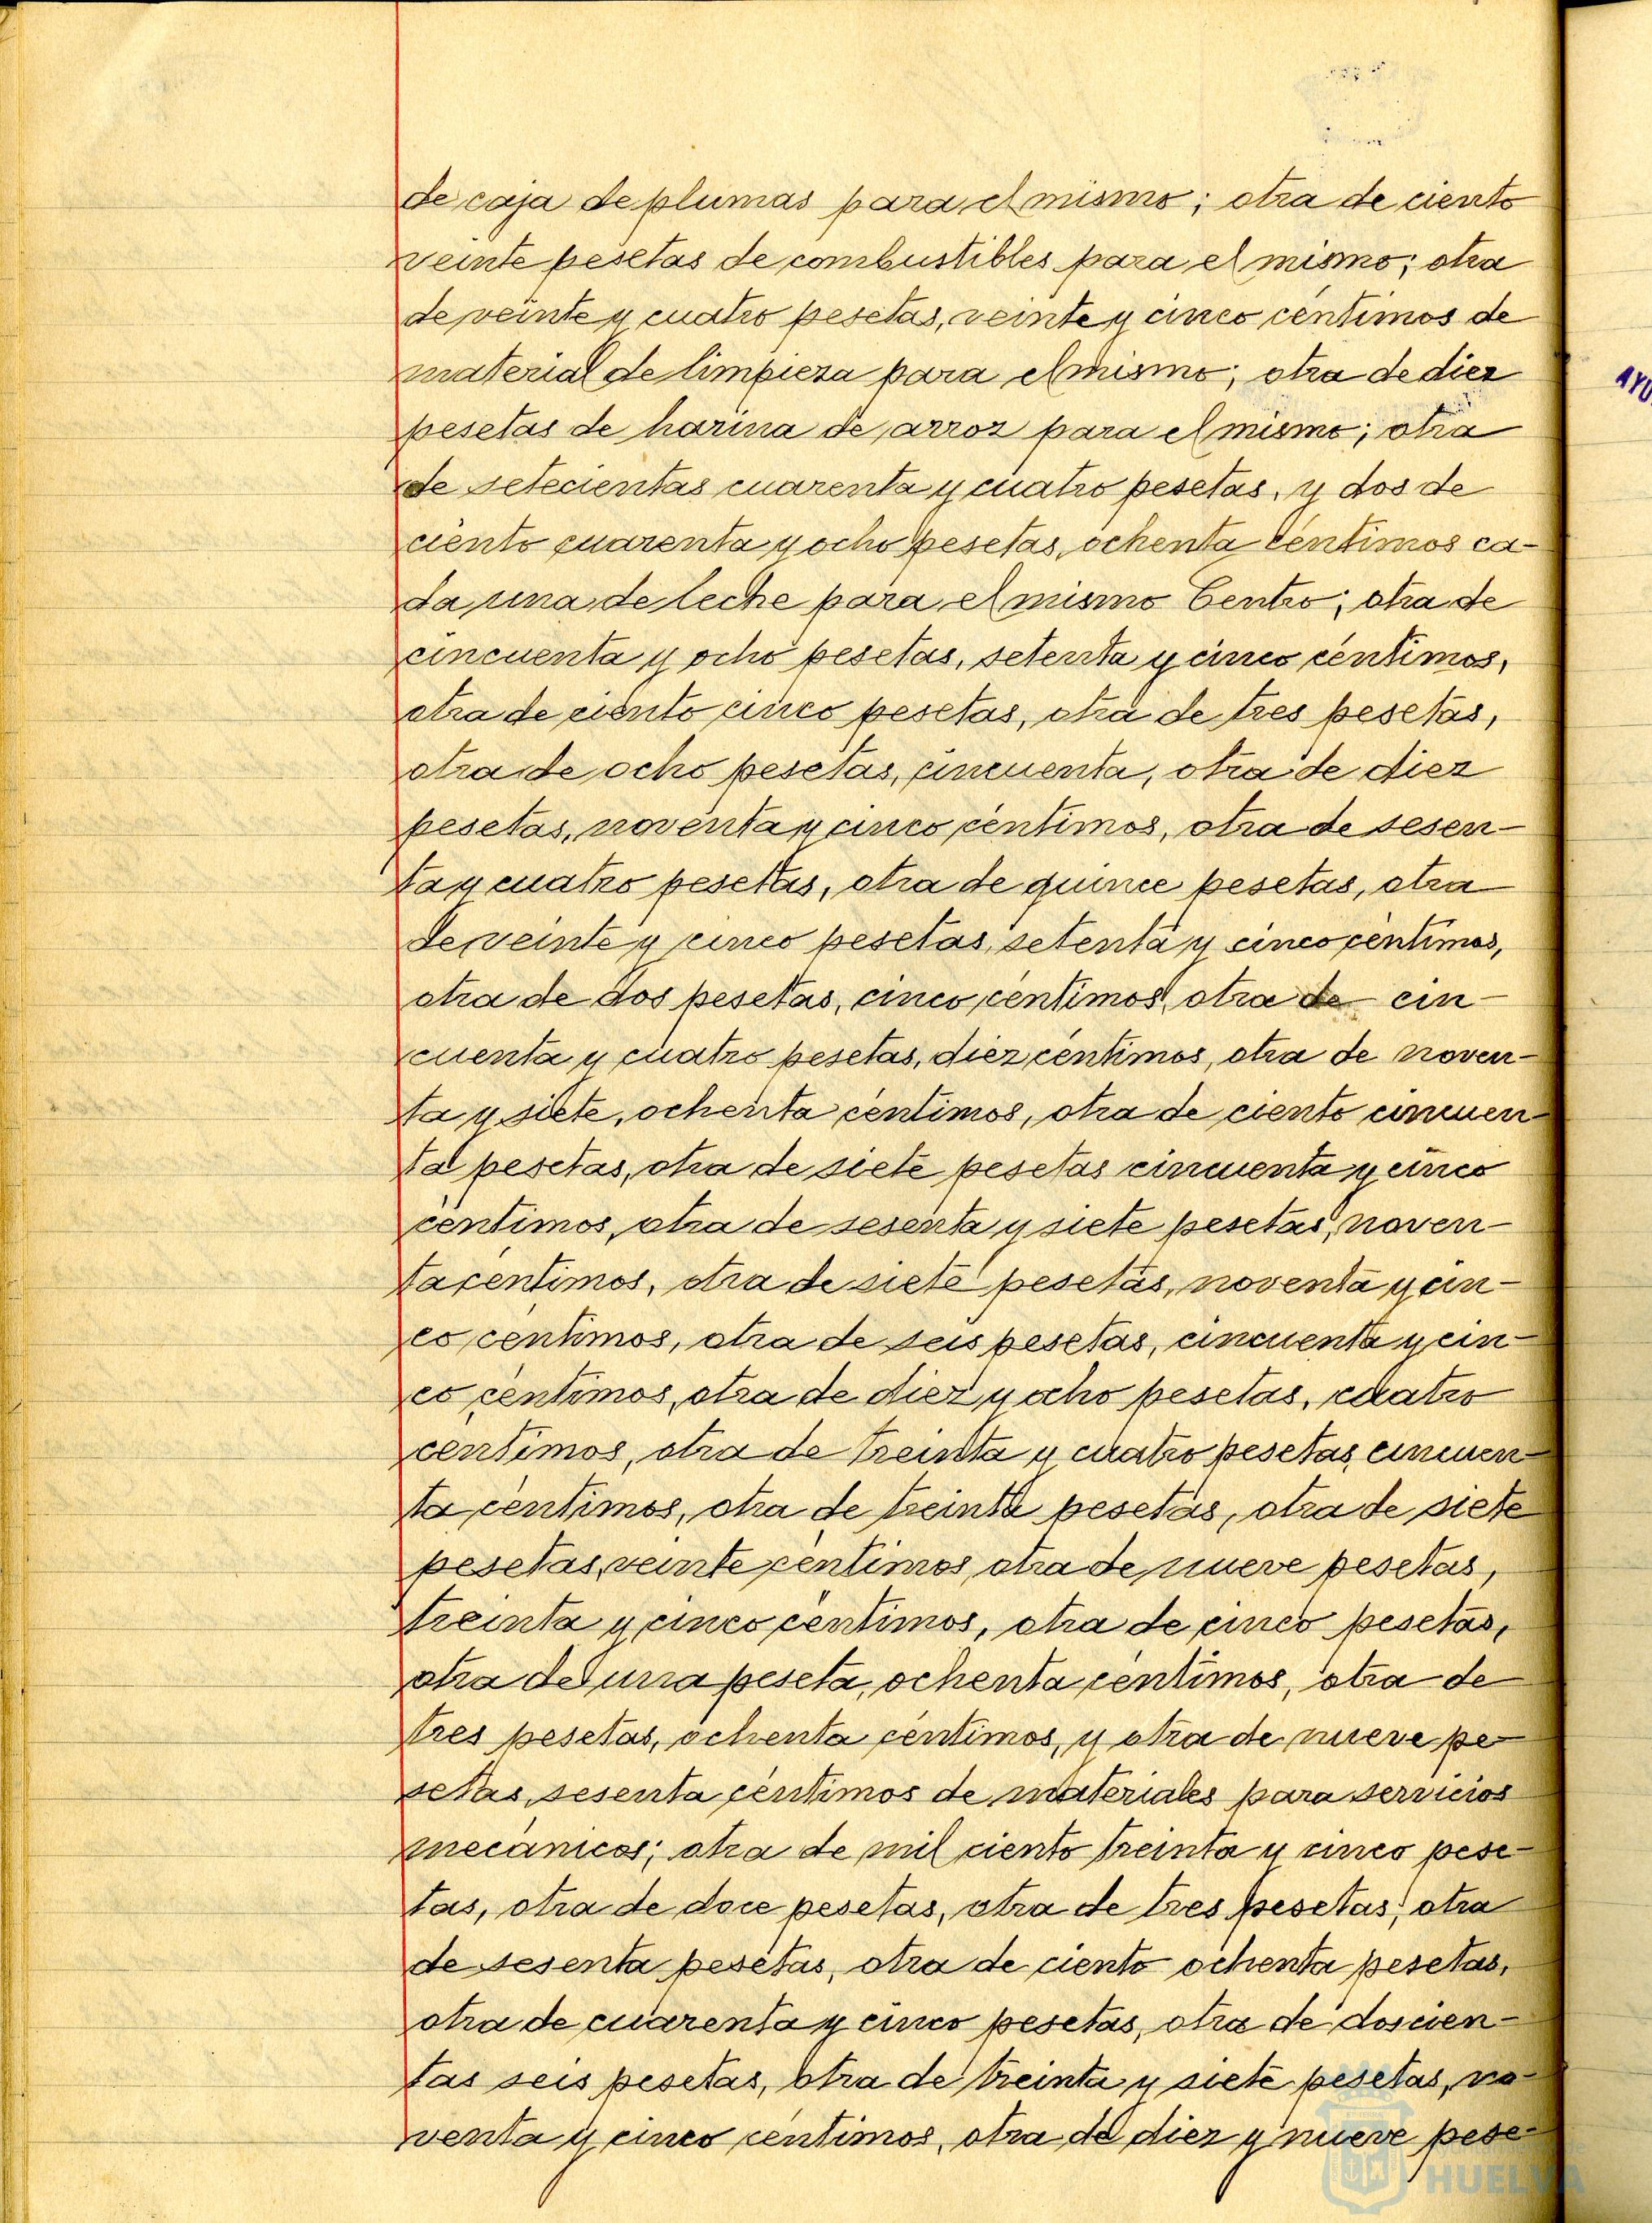 de caja de plumas para el mismo; otra de ciento
veinte pesetas de combustibles para el mismo; otra
de veinte y cuatro pesetas, veinte y cinco céntimos de
material de limpieza para el mismo; otra de diez
pesetas de harina de arroz para el mismo; otra
de setecientas cuarenta y cuatro pesetas, y dos de
ciento cuarenta y ocho pesetas, ochenta céntimos ca-
da una de leche para el mismo Centro; otra de
cincuenta y ocho pesetas, setenta y cinco céntimos,
otra de ciento cinco pesetas, otra de tres pesetas,
otra de ocho pesetas, cincuenta, otra de diez
pesetas, noventa y cinco céntimos, otra de sesen-
ta y cuatro pesetas, otra de quince pesetas, otra
de veinte y cinco pesetas, setenta y cinco céntimos,
otra de dos pesetas, cinco céntimos, otra de cin-
cuenta y cuatro pesetas, diez céntimos, otra de noven-
ta y siete, ochenta céntimos, otra de ciento cincuen-
ta pesetas, otra de siete pesetas cincuenta y cinco
céntimos, otra de sesenta y siete pesetas, noven-
ta céntimos, otra de siete pesetas, noventa y cin-
co céntimos, otra de seis pesetas, cincuenta y cin-
co céntimos, otra de diez y ocho pesetas, cuatro
céntimos, otra de treinta y cuatro pesetas, cincuen-
ta céntimos, otra de treinta pesetas, otra de siete
pesetas, veinte céntimos, otra de nueve pesetas,
treinta y cinco céntimos, otra de cinco pesetas,
otra de una peseta, ochenta céntimos, otra de
tres pesetas, ochenta céntimos, y otra de nueve pe-
setas, sesenta céntimos de materiales para servicios
mecánicos; otra de mil ciento treinta y cinco pese-
tas, otra de doce pesetas, otra de tres pesetas, otra
de sesenta pesetas, otra de ciento ochenta pesetas,
otra de cuarenta y cinco pesetas, otra de doscien-
tas seis pesetas, otra de treinta y siete pesetas, no-
venta y cinco céntimos, otra de diez y nueve pese-
AYU
HUELVA